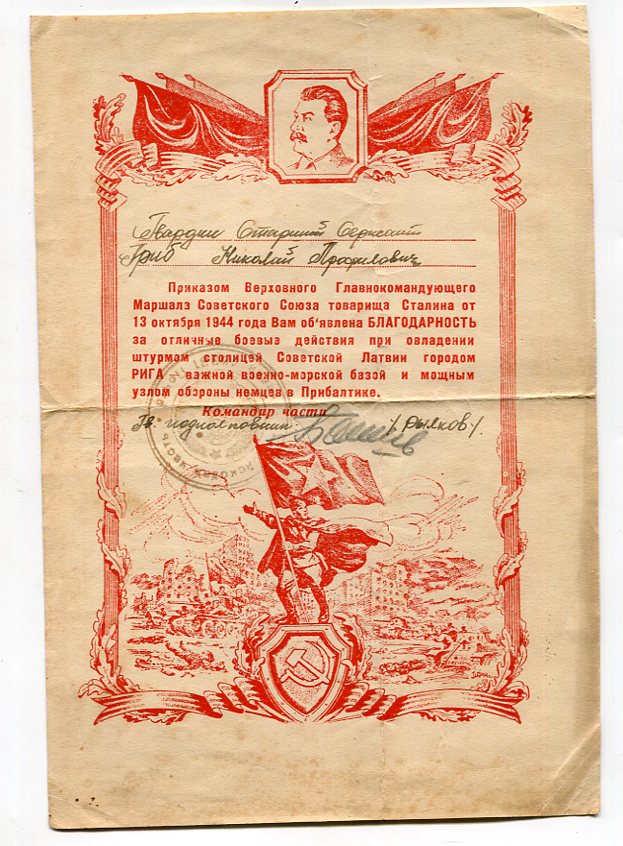 Гвардии Старший Сержант
Гриб Николай Трофилович
Приказом Верховного Главнокомандующего
Маршала Советского Союза товарища Сталина от
13 октября 1944 года Вам об'явлена БЛАГОДАРНОСТЬ
за отличные боевые действия при овладении
штурмом столицей Советской Латвии городом
РИГА важной военно-морской базой и мощным
узлом обороны немцев в Прибалтике.
Командир части
Гв. подполковник /Рыяков/.